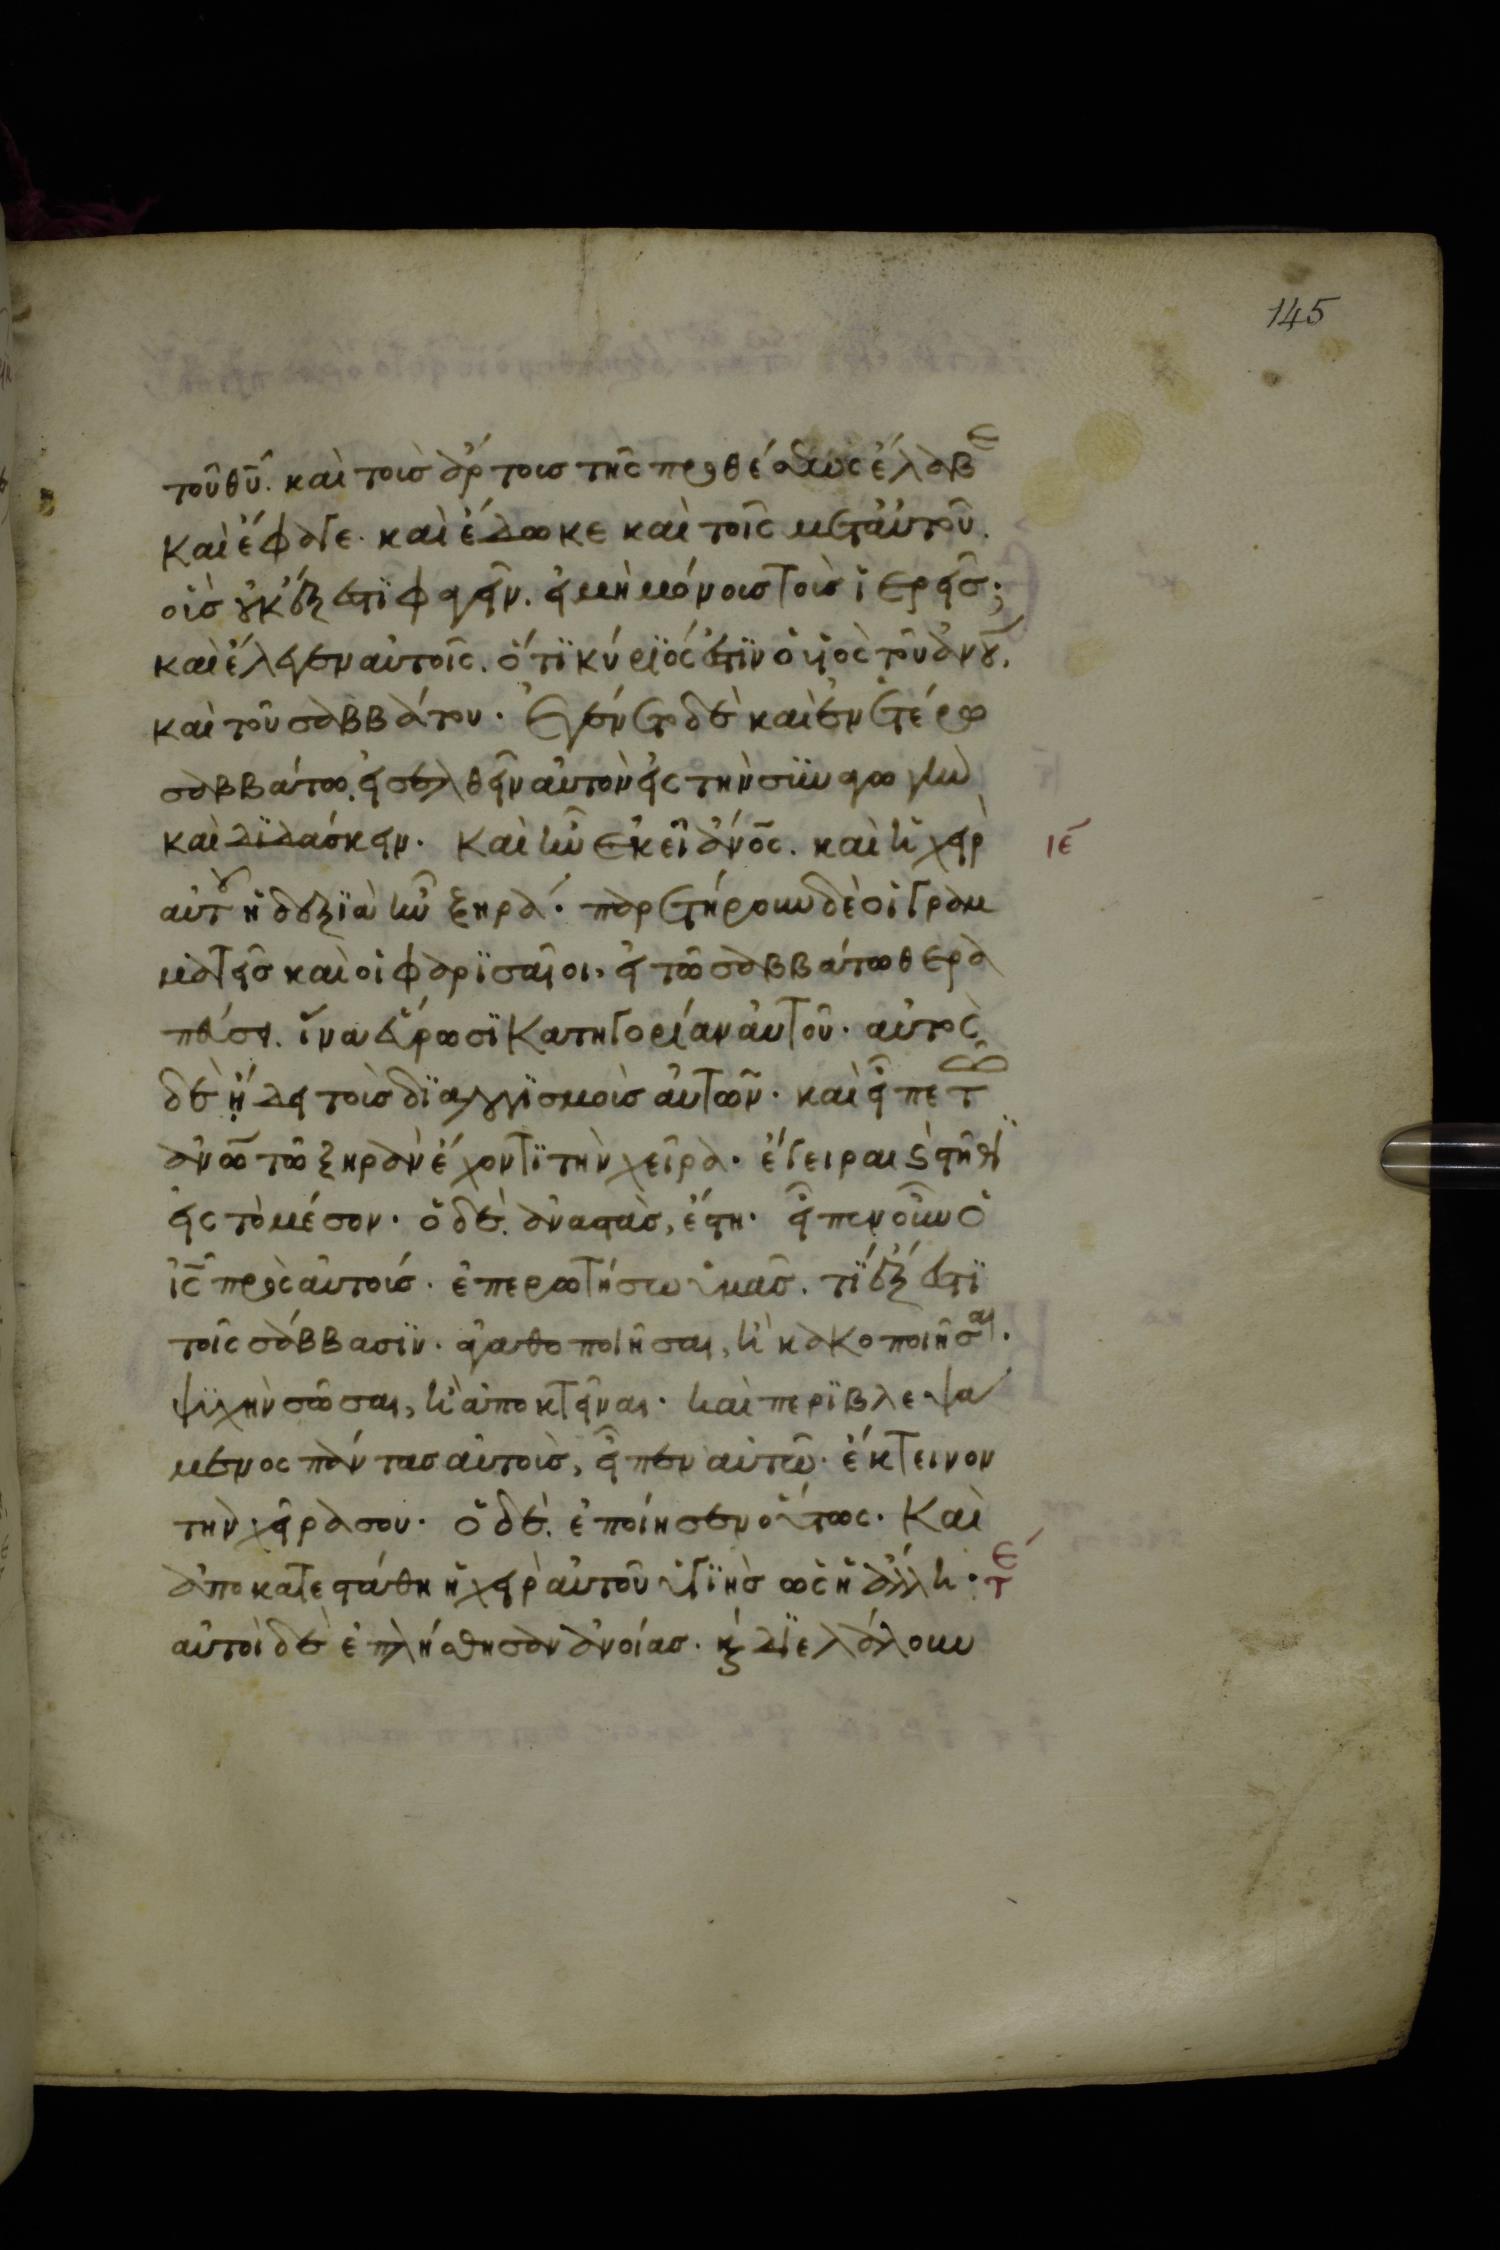 145
τοῦ θῦ. καὶ τοὺς ἄρτους τῆς προθέσεως ἔλαβε
καὶ ἔφαγε. καὶ ἔδωκε καὶ τοῖς μετ αὐτοῦ.
οὓς οὐκ ἔξεστι φαγεῖν. εἰ μὴ μόνους τοὺς ἱερεῖς;
καὶ ἔλεγεν αὐτοῖς. ὅτι κύριός ἐστιν ὁ υἱὸς τοῦ ἀνου,
καὶ τοῦ σαββάτου. Ἐγένετο δὲ καὶ ἐν ἑτέρω
σαββάτω, εἰσελθεῖν αὐτὸν εἰς τὴν συναγωγὴν
καὶ διδάσκειν. Καὶ ἦν ἐκεῖ ἄνος. καὶ ἡ χεὶρ
ιε
αὐτοῦ ἡ δεξιὰ ἦν ξηρά. παρετήρουν δὲ οἱ γραμ
ματεῖς καὶ οἱ φαρισαῖοι, εἰ τῶ σαββάτω θερα
πεύσει. ἵνα εὕρωσι κατηγορίαν αὐτοῦ. αὐτὸς
δὲ ἤδει τοὺς διαλογισμοὺς αὐτῶν. καὶ εἶπε τῶ
ἀνω τῶ ξηρὰν ἔχοντι τὴν χεῖρα. ἔγειραι καὶ στῆθι
εἰς τὸ μέσον. ὁ δὲ ἀναστὰς, ἔστη. εἶπεν οὖν ὁ
ἰς πρὸς αὐτούς. ἐπερωτήσω ὑμᾶς. τί ἔξεστι
τοῖς σάββασιν. ἀγαθοποιῆσαι, ἢ κακοποιῆσαι.
ψυχὴν σῶσαι, ἢ ἀποκτεῖναι. καὶ περιβλεψά
μενος πάντας αὐτοὺς, εἶπεν αὐτῶ. ἔκτεινον
τὴν χεῖρά σου. ὁ δὲ ἐποίησεν οὕτως. Καὶ
ἀποκατεστάθη ἡ χεὶρ αὐτοῦ ὑγιὴς ὡς ἡ ἄλλη. τε
αὐτοὶ δὲ ἐπλήσθησαν ἀνοίας. καὶ διελάλουν